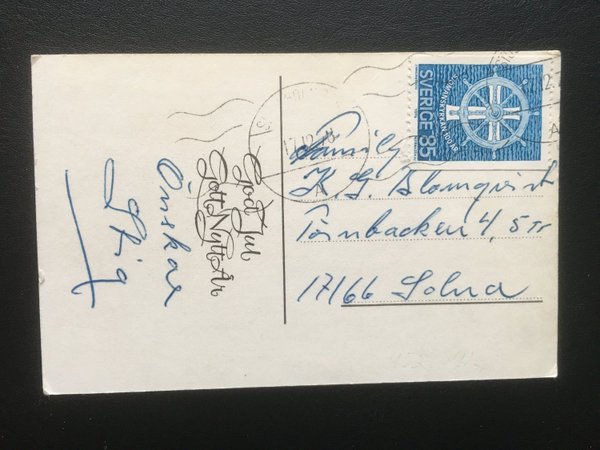 God Jul
Gott Nytt År
Önskar
Stig
SVERIGE 85
17.12
Familj
K.G. Blomqvist
Törnbacken 4, 5 tr
17166 Solna